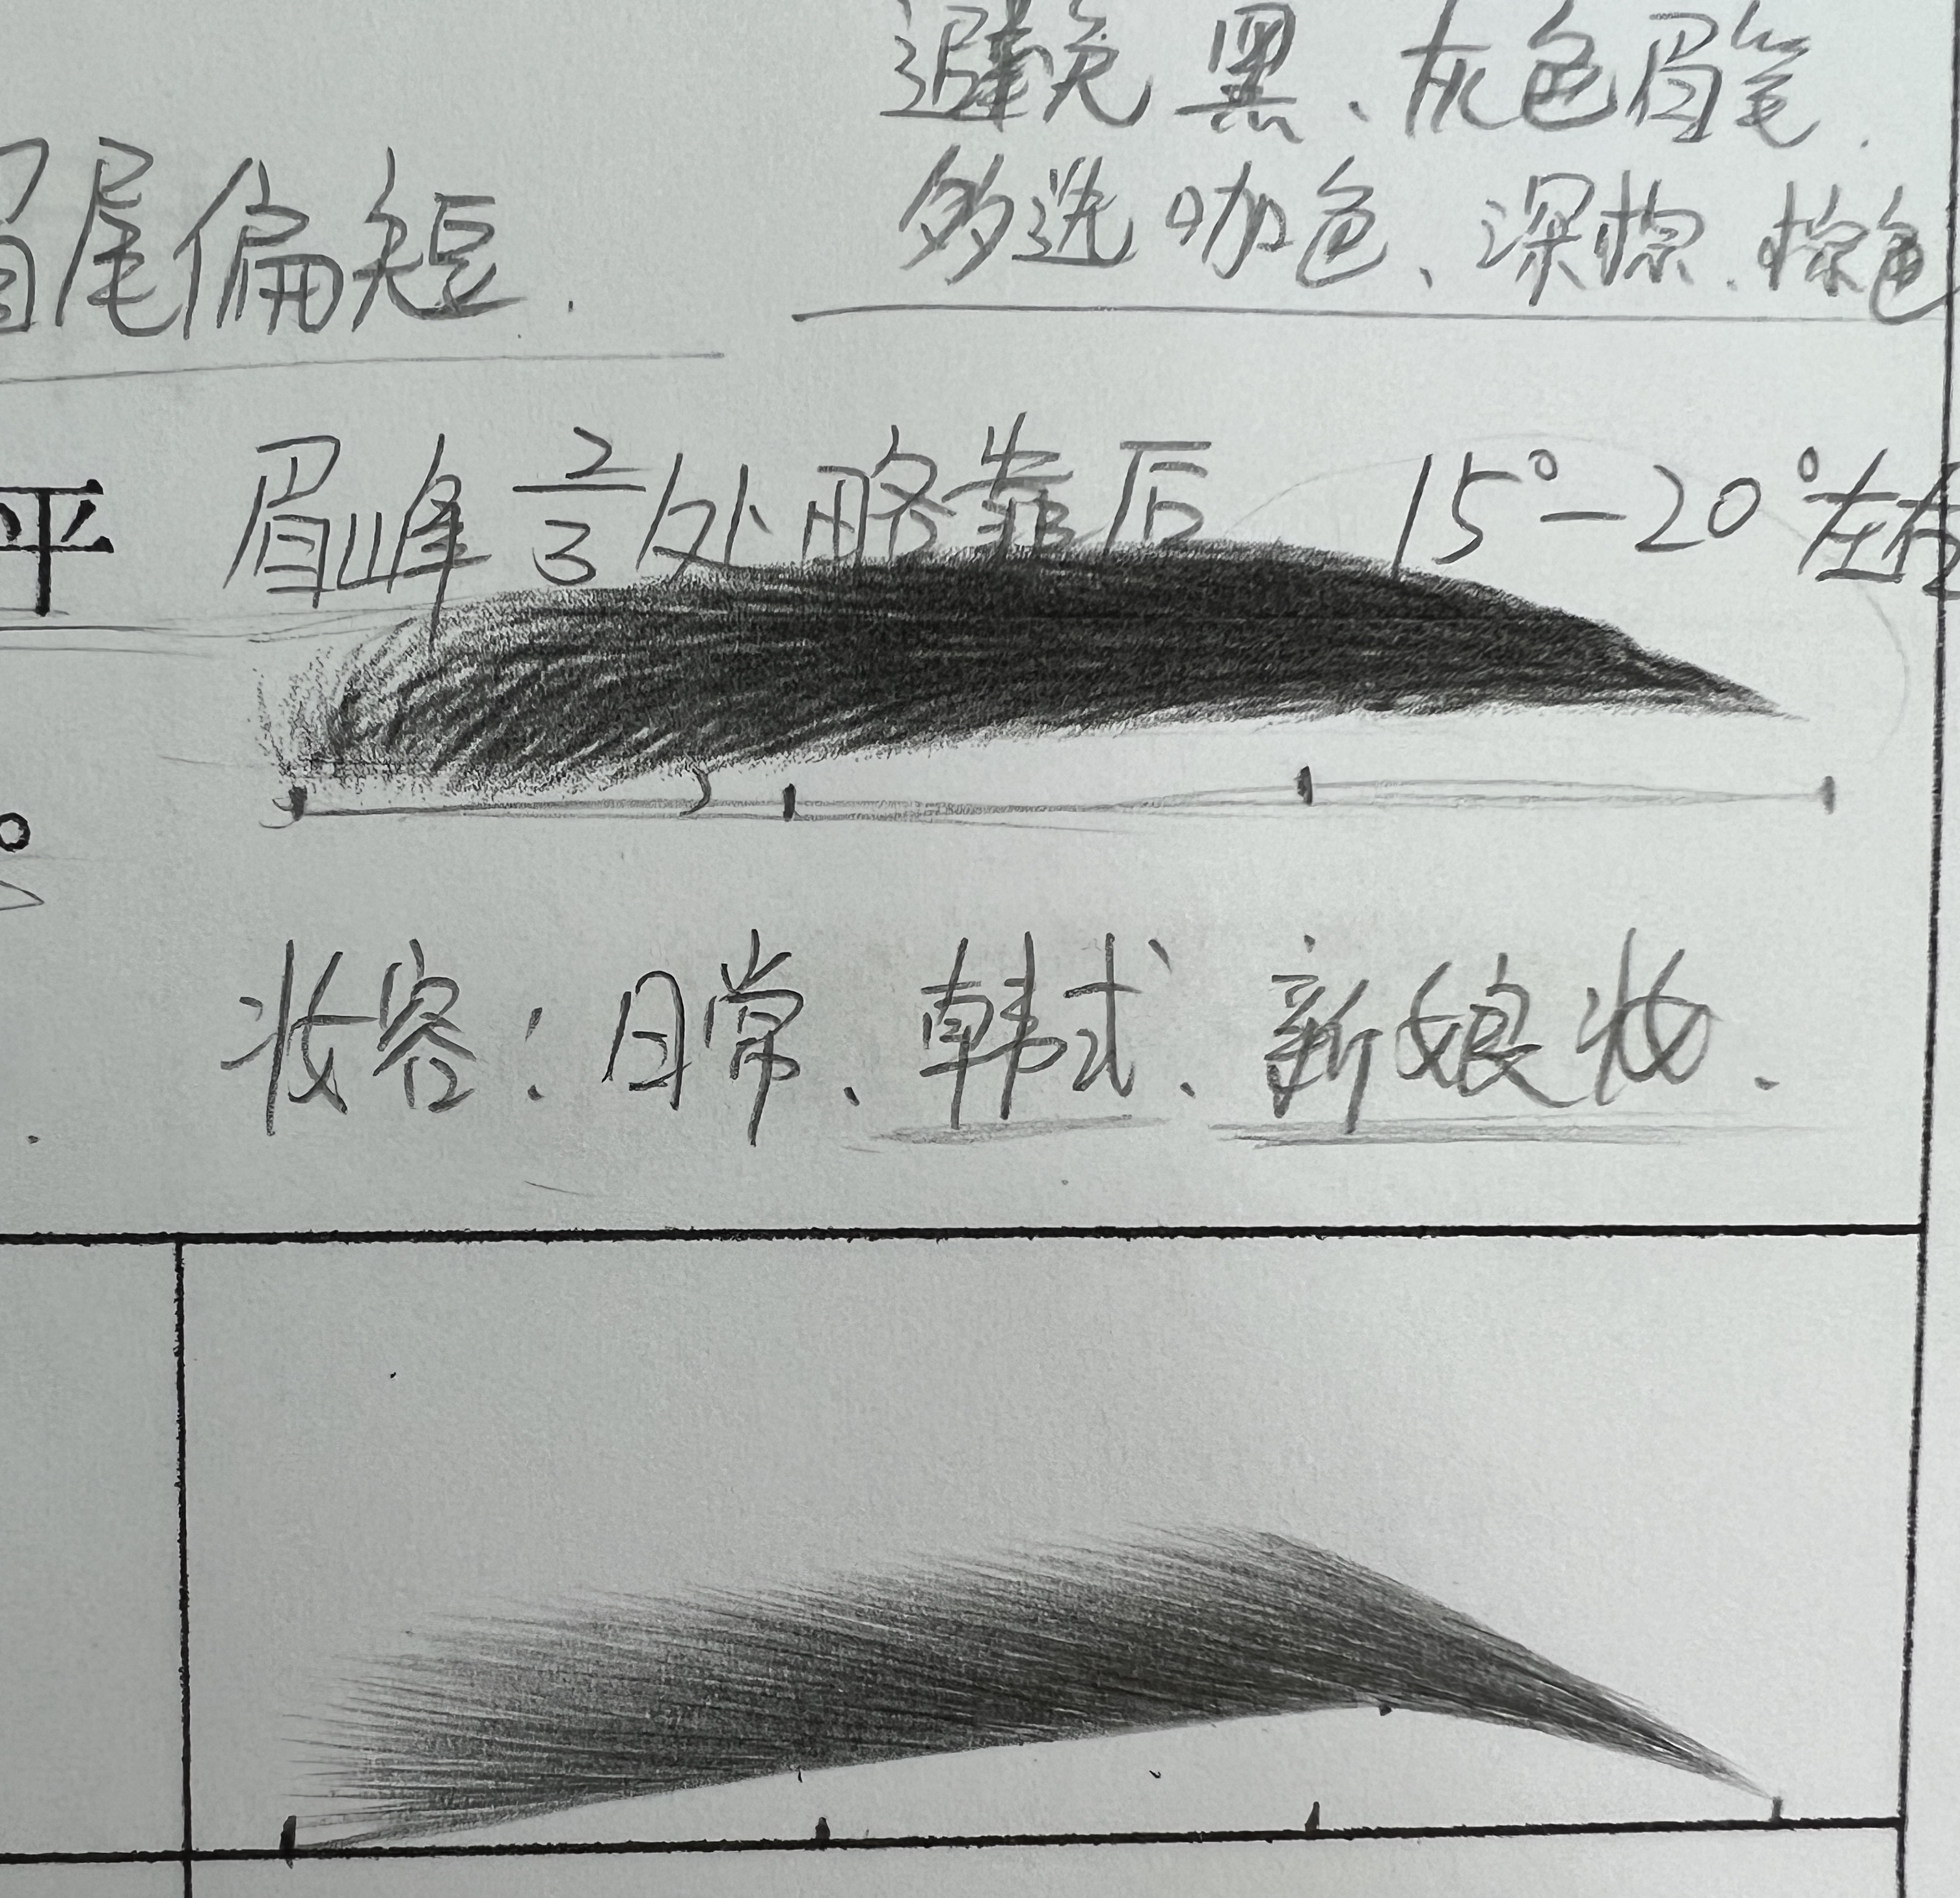 避免黑、灰色眉笔.
多选咖色、深棕、棕色
眉尾偏短.
平
眉峰2/3处略靠后 15°-20°左右
妆容:日常、韩式、新娘妆.